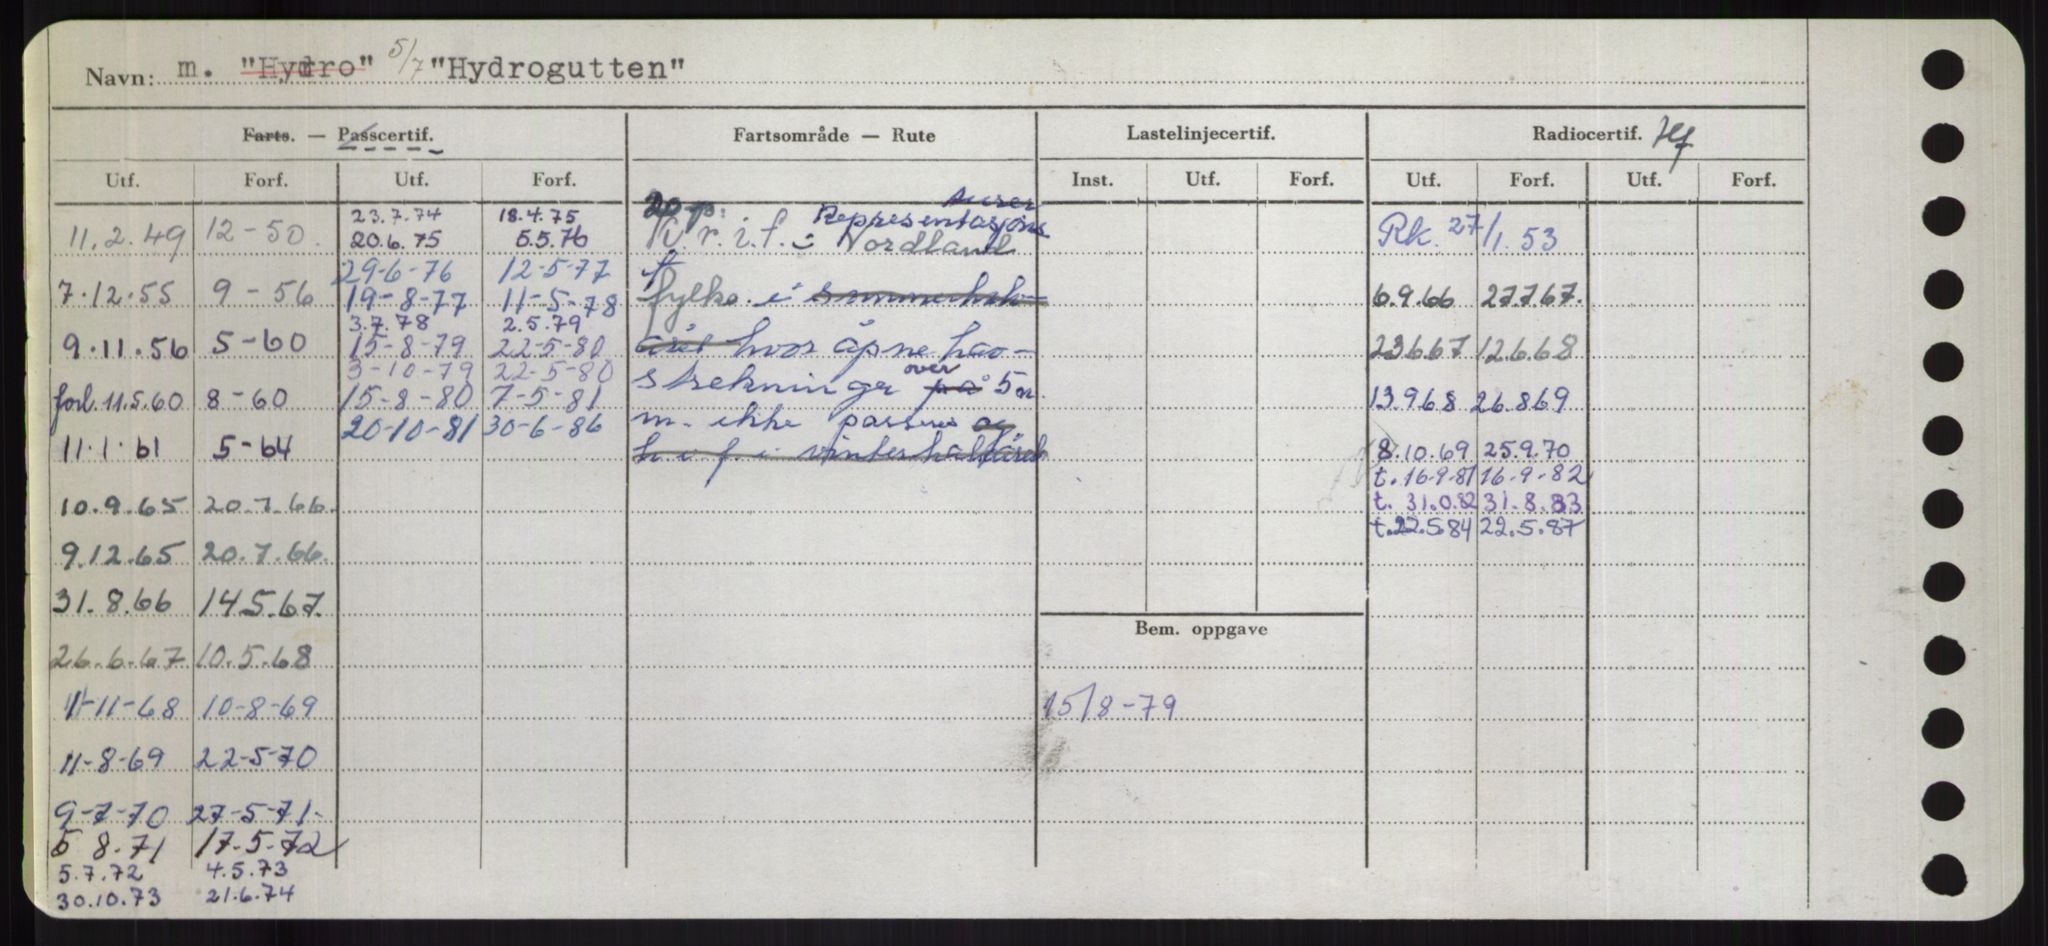 Navn: m. "Hydro" 5/7 "Hydrogutten"
Farts. — Passcertif. Fartsområde — Rute Lastelinjecertif. Radiocertif.
Utf. Forf. Utf. Forf. Inst. Utf. Forf. Utf. Forf. Utf. Forf.
11.2.49 12-50.
7.12.55 9-56
9.11.56 5-60
forl. 11.5.60 8-60
11.1.61 5-64
10.9.65 20.7.66.
9.12.65 20.7.66.
31.8.66 14.5.67.
26.6.67 10.5.68
11-11-68 10-8-69
11-8-69 22-5-70
9-7-70 27-5-71-
5 8.71 17.5.72
5.7.72 4.5.73
30.10.73 21.6.74
23.7.74 18.4.75
20.6.75 5.5.76
29-6-76 12-5-77
19-8-77 11-5-78
3.7.78 2.5.79
15-8-79 22-5-80
3-10-79 22-5-80
15-8-80 7-5-81
20-10-81 30-6-86
20 p.
Representasjons
K.r.i.f. i Nordland
fylke i sommerhalv-
året hvor åpne hav-
strekninger på over 5 n.
m. ikke passeres og
h.i.f. i vinterhalvåret
Bem. oppgave
15/8-79
Rk. 27/1.53
6.9.66 27.7.67.
23.6.67 12.6.68
13.9.68 26.8.69
8.10.69 25.9.70
t. 16-9-81 16-9-82
t. 31.0.82 31.8.83
t. 22.5.84 22.5.87